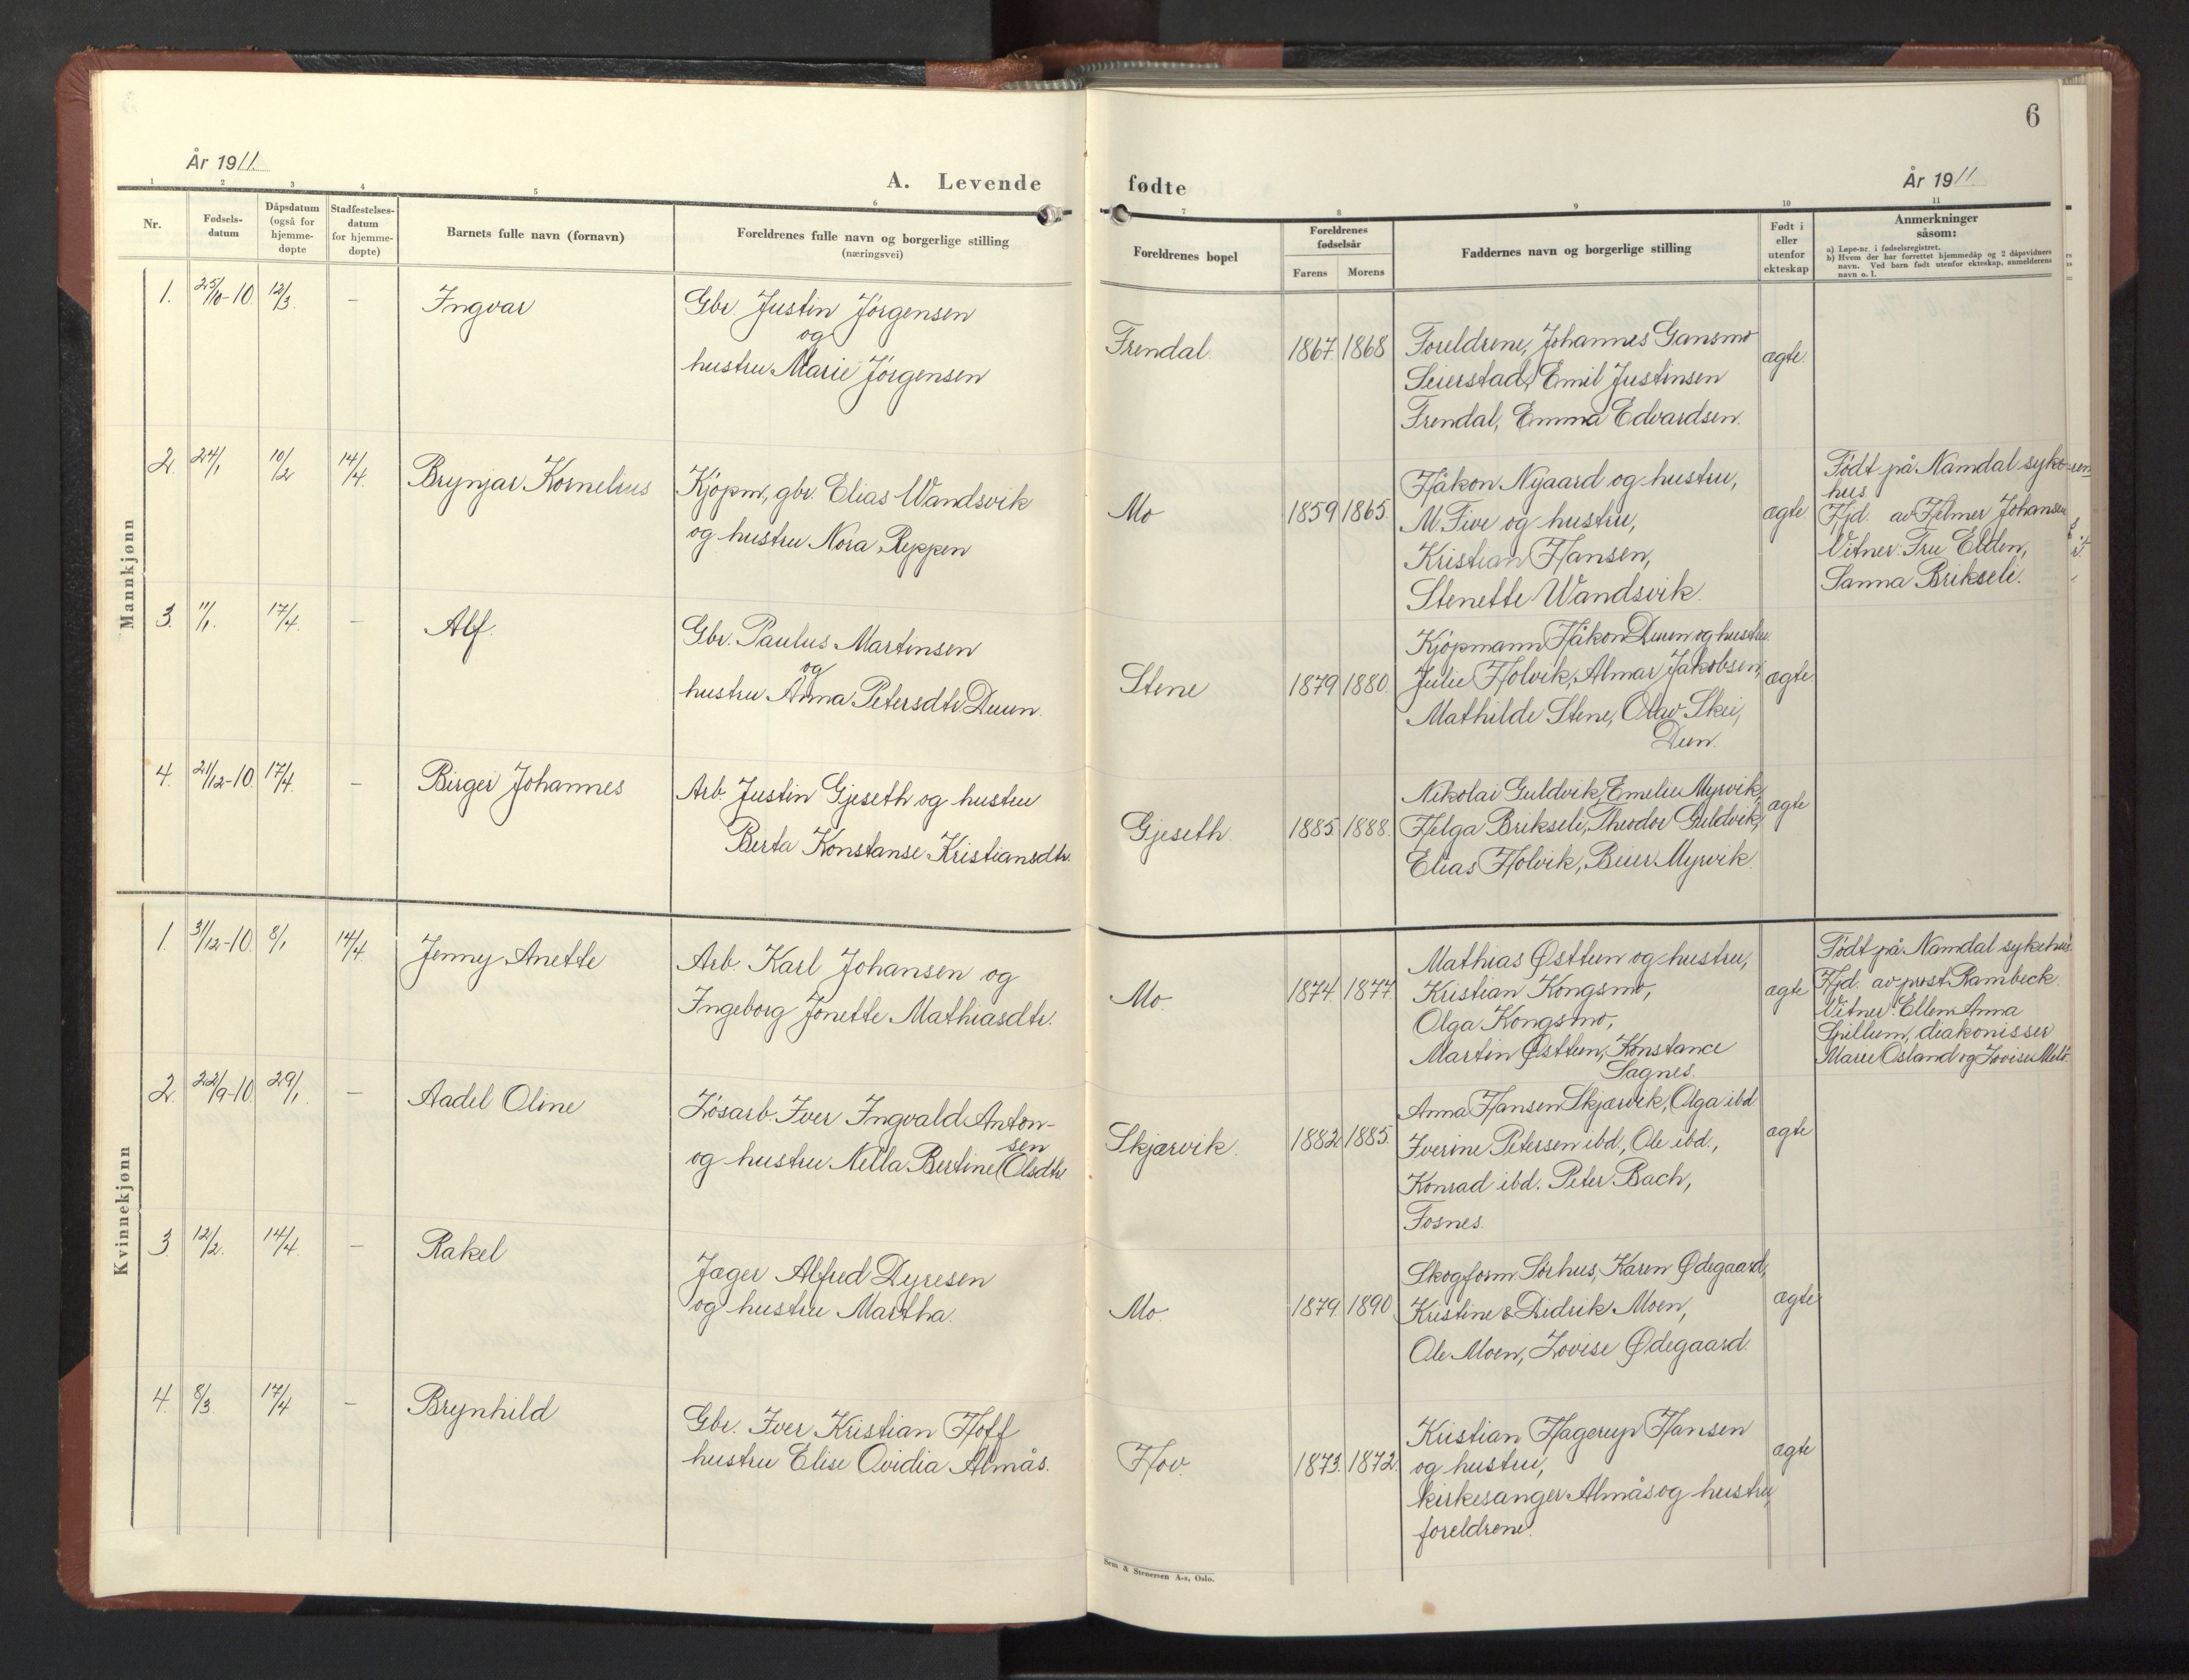 6
År 1911.
A. Levende fødte
År 1911
1 2 3 4 5 6 7 8 9 10 11
Nr.
Fødsels-
datum
Dåpsdatum
(også for
hjemme-
døpte
Stadfestelses-
datum
for hjemme-
døpte)
Barnets fulle navn (fornavn)
Foreldrenes fulle navn og borgerlige stilling
(næringsvei)
Foreldrenes bopel
Foreldrenes
fødselsår
Farens Morens
Faddernes navn og borgerlige stilling
Født i
eller
utenfor
ekteskap
Anmerkninger
såsom:
a) Løpe-nr. i fødselsregistret.
b) Hvem der har forrettet hjemmedåp og 2 dåpsvidners
navn. Ved barn født utenfor ekteskap, anmelderens
navn o. l.
Mannkjønn
1. 25/10-10 12/3. – Ingvar
Gbr. Justin Jörgensen
og
hustru Marie Jörgensen
Frendal. 1867. 1868
Foreldrene, Johannes Gansmo
Seierstad, Emil Justinsen
Frendal, Emma Edvardsen.
ægte.
2. 24/1 10/2 14/4. Brynjar Kornelius
Kjöpm, gbr. Elias Wandsvik
og hustru Nora Reppen
Mo 1859 1865.
Håkon Nyaard og hustru,
M. Five og hustru,
Kristian Hansen,
Stenette Wandsvik.
ægte
Födt på Namdal syke-
hus.
Hjd. av Helmer Johansen
Vitner: Fru Elden,
Sanna Brikseli.
3. 11/1. 17/4. – Alf.
Gbr. Paulus Martinsen
og
hustru Anna Petersdtr Duun.
Stene 1879 1880.
Kjöpmann Håkon Duun og hustru
Julie Holvik, Almar Jakobsen,
Mathilde Stene, Olav Skei,
Dun.
ægte.
4. 21/12-10 17/4. – Birger Johannes
Arb. Justin Gjeseth og hustru
Berta Konstanse Kristiansdtr.
Gjeseth. 1885 1888.
Nikolai Guldvik, Emelie Myrvik,
Helga Brikseli, Theodor Guldvik,
Elias Holvik, Beier Myrvik.
ægte
Kvinnekjønn
1. 31/12-10. 8/1 14/4 Jenny Anette
Arb. Karl Johansen og
Ingeborg Jonette Mathiasdtr.
Mo. 1874. 1877
Mathias Östtun og hustru,
Kristian Kongsmo,
Olga Kongsmo,
Martin Östtun, Konstance
Sagnes.
ægte
Födt på Namdal sykehus.
Hjd. av prost Rambeck.
Vitner: Ellen Anna
Spillum, diakonisser
Marie Osland og Lovise Melö.
2. 22/9-10 29/1. – Aadel Oline
Lösarb. Iver Ingvald Anton-
sen
og hustru Nella Bertine Olsdtr
Skjærvik. 1882 1885.
Anna Hansen Skjærvik, Olga ibd
Iverine Petersen ibd., Ole ibd.,
Konrad ibd. Peter Bach,
Fosnes.
ægte
3. 12/2. 14/4. – Rakel
Jæger Alfred Dyresen
og hustru Martha.
Mo. 1879. 1890
Skogform. Sörhus, Karen Ödegaard,
Kristine & Didrik Moen,
Ole Moen, Lovise Ödegaard.
ægte
4. 8/3. 17/4 – Brynhild
Gbr. Iver Kristian Hoff
hustru Elise Ovidia Almås.
Hov. 1873. 1872.
Kristian Hagerup Hansen
og hustru,
kirkesanger Almås og hustru,
foreldrene.
ægte
Sem & Stenersen A-s, Oslo.